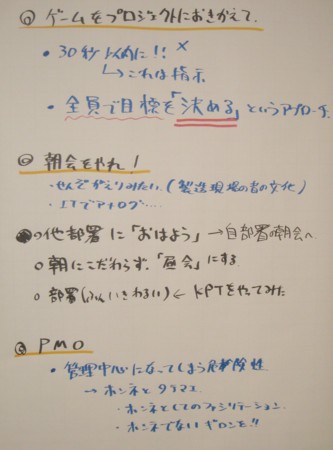 ◎ ゲームをプロジェクトにおきかえて.
・30秒以内に!! ×
↳ これは指示
・全員で目標を「決める」というアプローチ.
◎ 朝会をやれ!
・せんぞがえりみたい. (製造現場の昔の文化)
・ITでアナログ....
○他部署に「おはよう」→自部署の朝会へ
○朝にこだわらず、「昼会」にする
○部署(ふんいきわるい) ← KPTをやってみた
◎ PMO
・管理中心になってしまう危険性
→ ホンネとタテマエ
・ホンネとしてのファシリテーション.
・ホンネでないギロンを!!